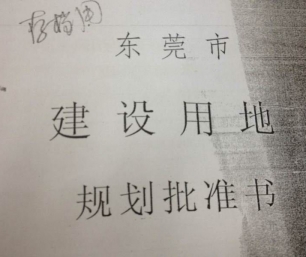 存档用
东莞市
建设用地
规划批准书